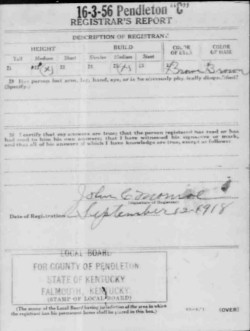 16-3-56 Pendleton
REGISTRAR'S REPORT
DESCRIPTION OF REGISTRANT
HEIGHT BUILD COLOR OF EYES COLOR OF HAIR
Tall Medium Short Slender Medium Stout
Brown Brown
Has person lost arm, leg, hand, eye, or is he obviously physically disqualified?
(Specify.)
I certify that my answers are true; that the person registered has read or has
had read to him his own answers; that I have witnessed his signature or mark,
and that all of his answers of which I have knowledge are true, except as follows:
John C
Date of Registration September 12-1918
LOCAL BOARD
FOR COUNTY OF PENDLETON
STATE OF KENTUCKY
FALMOUTH, KENTUCKY.
(STAMP OF LOCAL BOARD)
(The stamp of the Local Board having jurisdiction of the area in which
the registrant has his permanent home shall be placed in this box.)
(OVER)